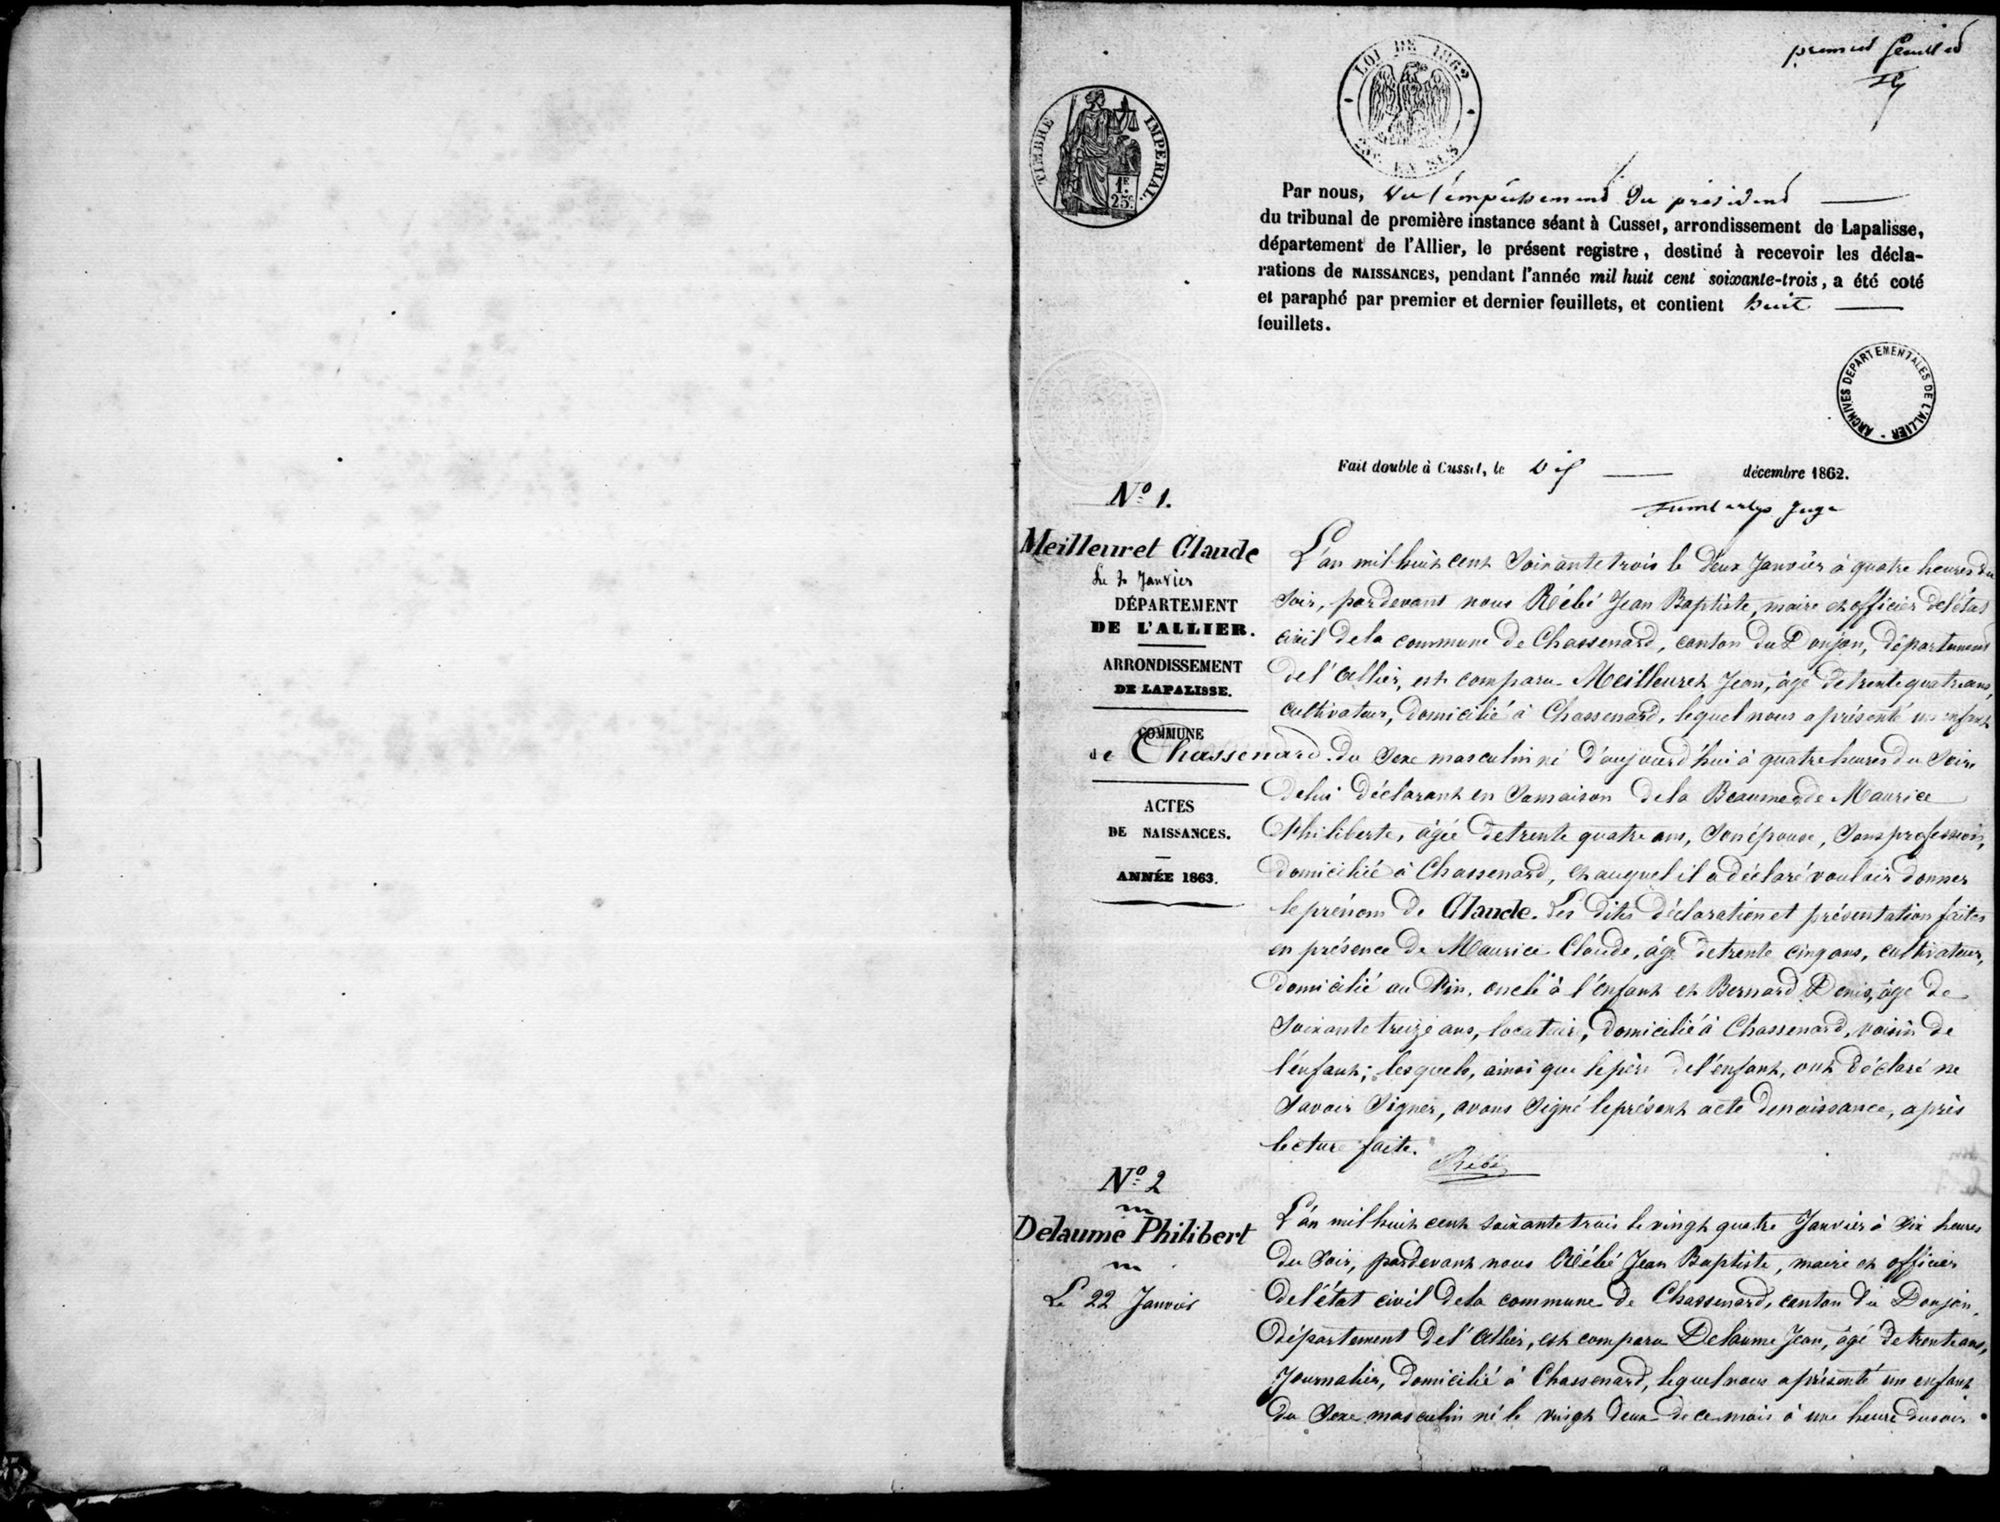 premier feuillet
LOI DE 1862
25c. EN SUS
TIMBRE IMPERIAL.
1F.
25c.
Par nous, Vu l'empêchement du président
du tribunal de première instance séant à Cusset, arrondissement de Lapalisse,
département de l'Allier, le présent registre, destiné à recevoir les décla-
rations de NAISSANCES, pendant l'année mil huit cent soixante-trois, a été coté
et paraphé par premier et dernier feuillets, et contient huit
feuillets.
ARCHIVES DEPARTEMENTALES DE L'ALLIER -
Fait double à Cusset, le dix décembre 1862.
Juge
No 1.
Meilleuret Claude
Le 2 Janvier
DÉPARTEMENT
DE L'ALLIER.
ARRONDISSEMENT
DE LAPALISSE.
COMMUNE
de Chassenard
ACTES
DE NAISSANCES.
ANNÉE 1863.
L'an mil huit cent soixante trois le deux Janvier à quatre heures du
soir, pardevant nous Rébé Jean Baptiste, maire et officier de l'état
civil de la commune de Chassenard, canton du Donjon, département
de l'Allier, est comparu Meilleuret Jean, âgé de trente quatre ans,
cultivateur, domicilié à Chassenard, lequel nous a présenté un enfant
du sexe masculin né d'aujourd'hui à quatre heures du soir
de lui déclarant en sa maison de la Beaume et de Maurice
Philiberte, âgée de trente quatre ans, son épouse, sans profession,
domiciliée à Chassenard, et auquel il a déclaré vouloir donner
le prénom de Claude. Les dites déclaration et présentation faites
en présence de Maurice Claude, âgé de trente cinq ans, cultivateur,
domicilié au Pin, oncle à l'enfant et Bernard Denis, âgé de
soixante treize ans, locataire, domicilié à Chassenard, voisin de
l'enfant; lesquels, ainsi que le père de l'enfant, ont déclaré ne
savoir signer, avons signé le présent acte de naissance, après
lecture faite.
Rébé
No 2
Delaume Philibert
Le 22 Janvier
L'an mil huit cent soixante trois le vingt quatre Janvier à six heures
du soir, pardevant nous Rébé Jean Baptiste, maire et officier
de l'état civil de la commune de Chassenard, canton du Donjon,
département de l'Allier, est comparu Delaume Jean, âgé de trente ans,
journalier, domicilié à Chassenard, lequel nous a présenté un enfant
du sexe masculin né le vingt deux de ce mois à une heure du soir